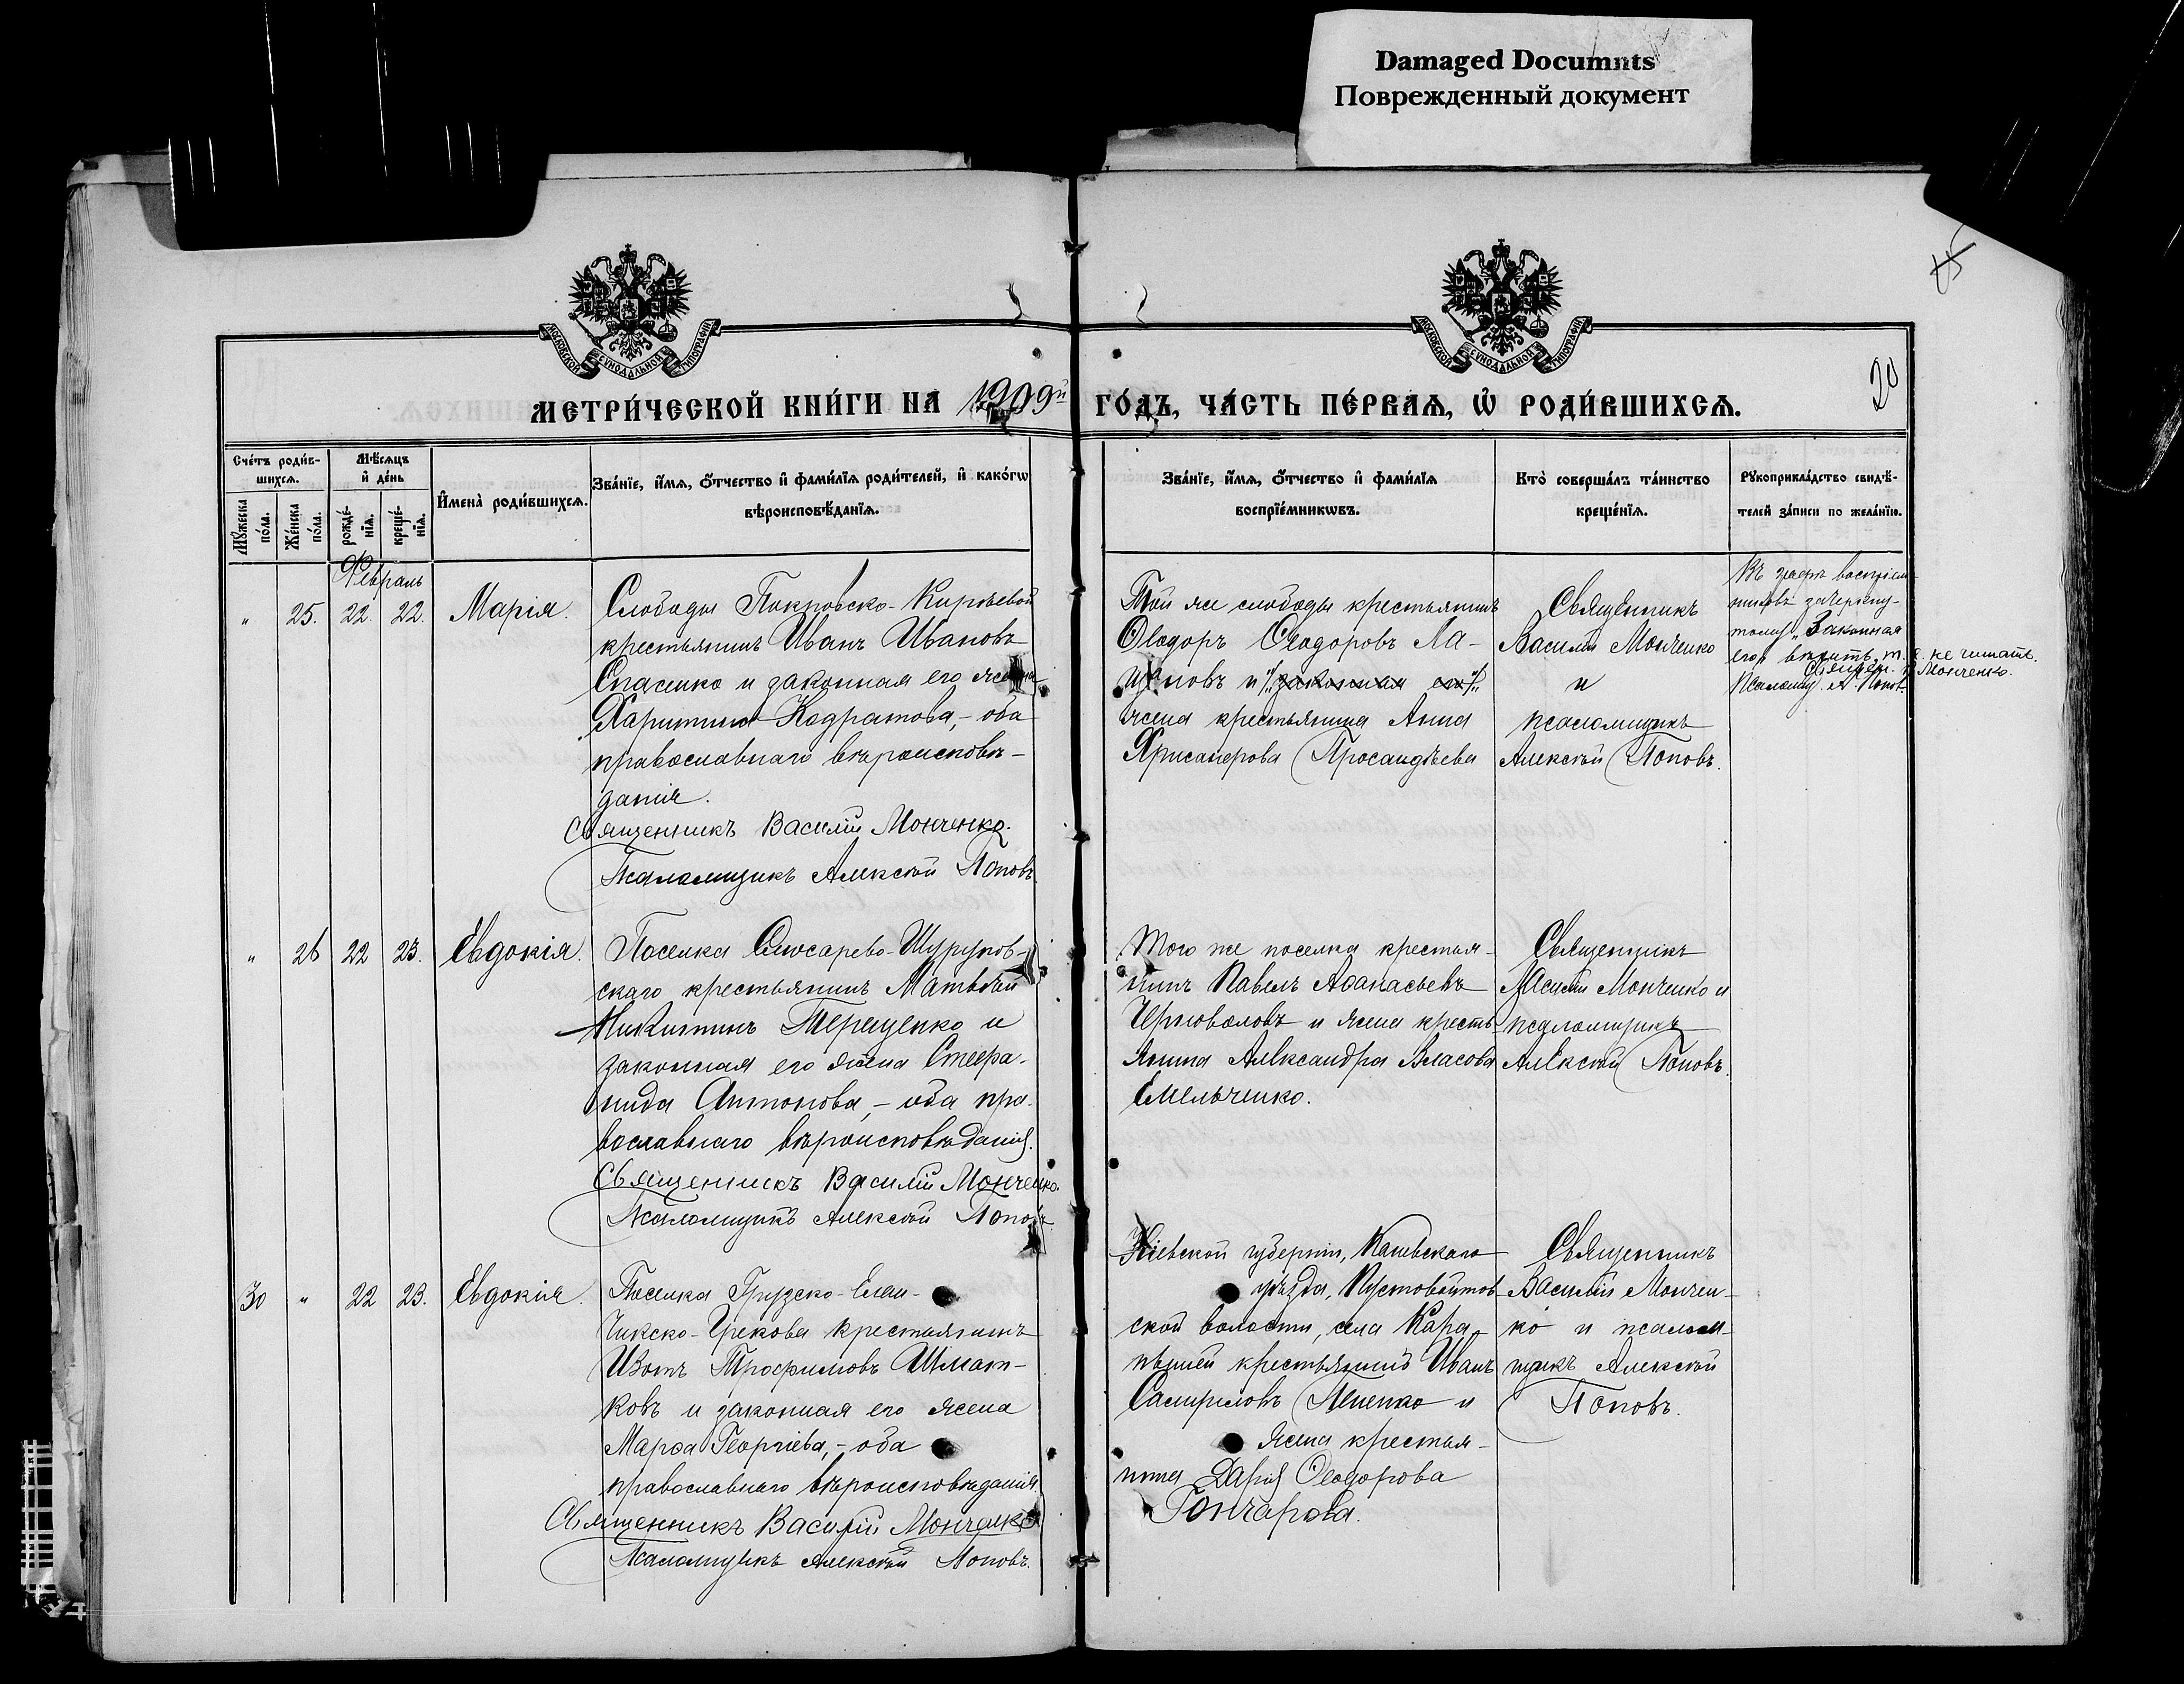 Damaged Documnts
Поврежденный документ
МОСКОВСКОЙ СѴНОДАЛЬНОЙ ТИПОГРАФІИ
МОСКОВСКОЙ СѴНОДАЛЬНОЙ ТИПОГРАФІИ
20
МЕТРИ́ЧЕСКОЙ КНИ́ГИ НА 1909й ГО́ДЪ, ЧА́СТЬ ПЕ́РВАЯ, Ѡ РОДИ́ВШИХСЯ.
Сче́тъ роди́в-
шихся.
Мѣ́сяцъ
и де́нь
Му́жеска
по́ла.
Же́нска
по́ла.
рожде́-
нія.
креще́-
нія.
Имена̀ роди́вшихся.
Зва́ніе, и́мя, о́тчество и фами́лія роди́телей, и како́гѡ
вѣроисповѣ́данія.
Зва́ніе, и́мя, о́тчество и фами́лія
воспріе́мникѡвъ.
Кто̀ соверша́лъ та́инство
креще́нія.
Рукоприкла́дство свидѣ́-
телей за́писи по жела́нію.
Февраль
" 25. 22. 22. Марія.
Слободы Покровско-Кирѣевой
крестьянинъ Иванъ Ивановъ
Спасенко и законная его жена
Харитина Кодратова,- оба
православнаго вѣроисповѣ-
данія.
Священникъ Василій Монченко.
Псаломщикъ Алексѣй Поповъ.
Той же слободы крестьянинъ
Ѳеодоръ Ѳеодоровъ Ла-
новъ и законная его
жена крестьянина Анна
Хрисанфова
Священникъ
Василій Монченко
и
псаломщикъ
Алексѣй Поповъ.
Въ графѣ воспріем-
никовъ зачеркну-
тому „Законная
его" не читать.
Священ. В. Монченко.
Псаломщ. А. Попов
" 26 22 23. Евдокія.
Поселка Слюсарево-Шурупов-
скаго крестьянинъ Матвѣй
Никитинъ Терещенко и
законная его жена Стефа-
нида Антонова,- оба пра-
вославнаго вѣроисповѣданія.
Священникъ Василій Монченко.
Псаломщикъ Алексѣй Поповъ.
Того же поселка крестья-
нинъ Павелъ Аѳанасьевъ
Черноволовъ и жена кресть-
янина Александра Власова
Емельченко.
Священникъ
Василій Монченко и
псаломщикъ
Алексѣй Поповъ.
30 " 22 23. Евдокія.
Поселка Грузско-Елан-
чикско-Грекова крестьянинъ
Изотъ Трофимовъ Шмат-
ковъ и законная его жена
Марѳа Георгіева,- оба
православнаго вѣроисповѣданія.
Священникъ Василій Монченко
Псаломщикъ Алексѣй Поповъ.
Кіевской губерніи, Каневскаго
уѣзда, Пустовойтов-
ской волости, села Кара-
пышей крестьянинъ Иванъ
и
жена крестья-
нина Дарія Ѳеодорова
Гончарова.
Священникъ
Василій Мончен-
ко и псалом-
щикъ Алексѣй
Поповъ.